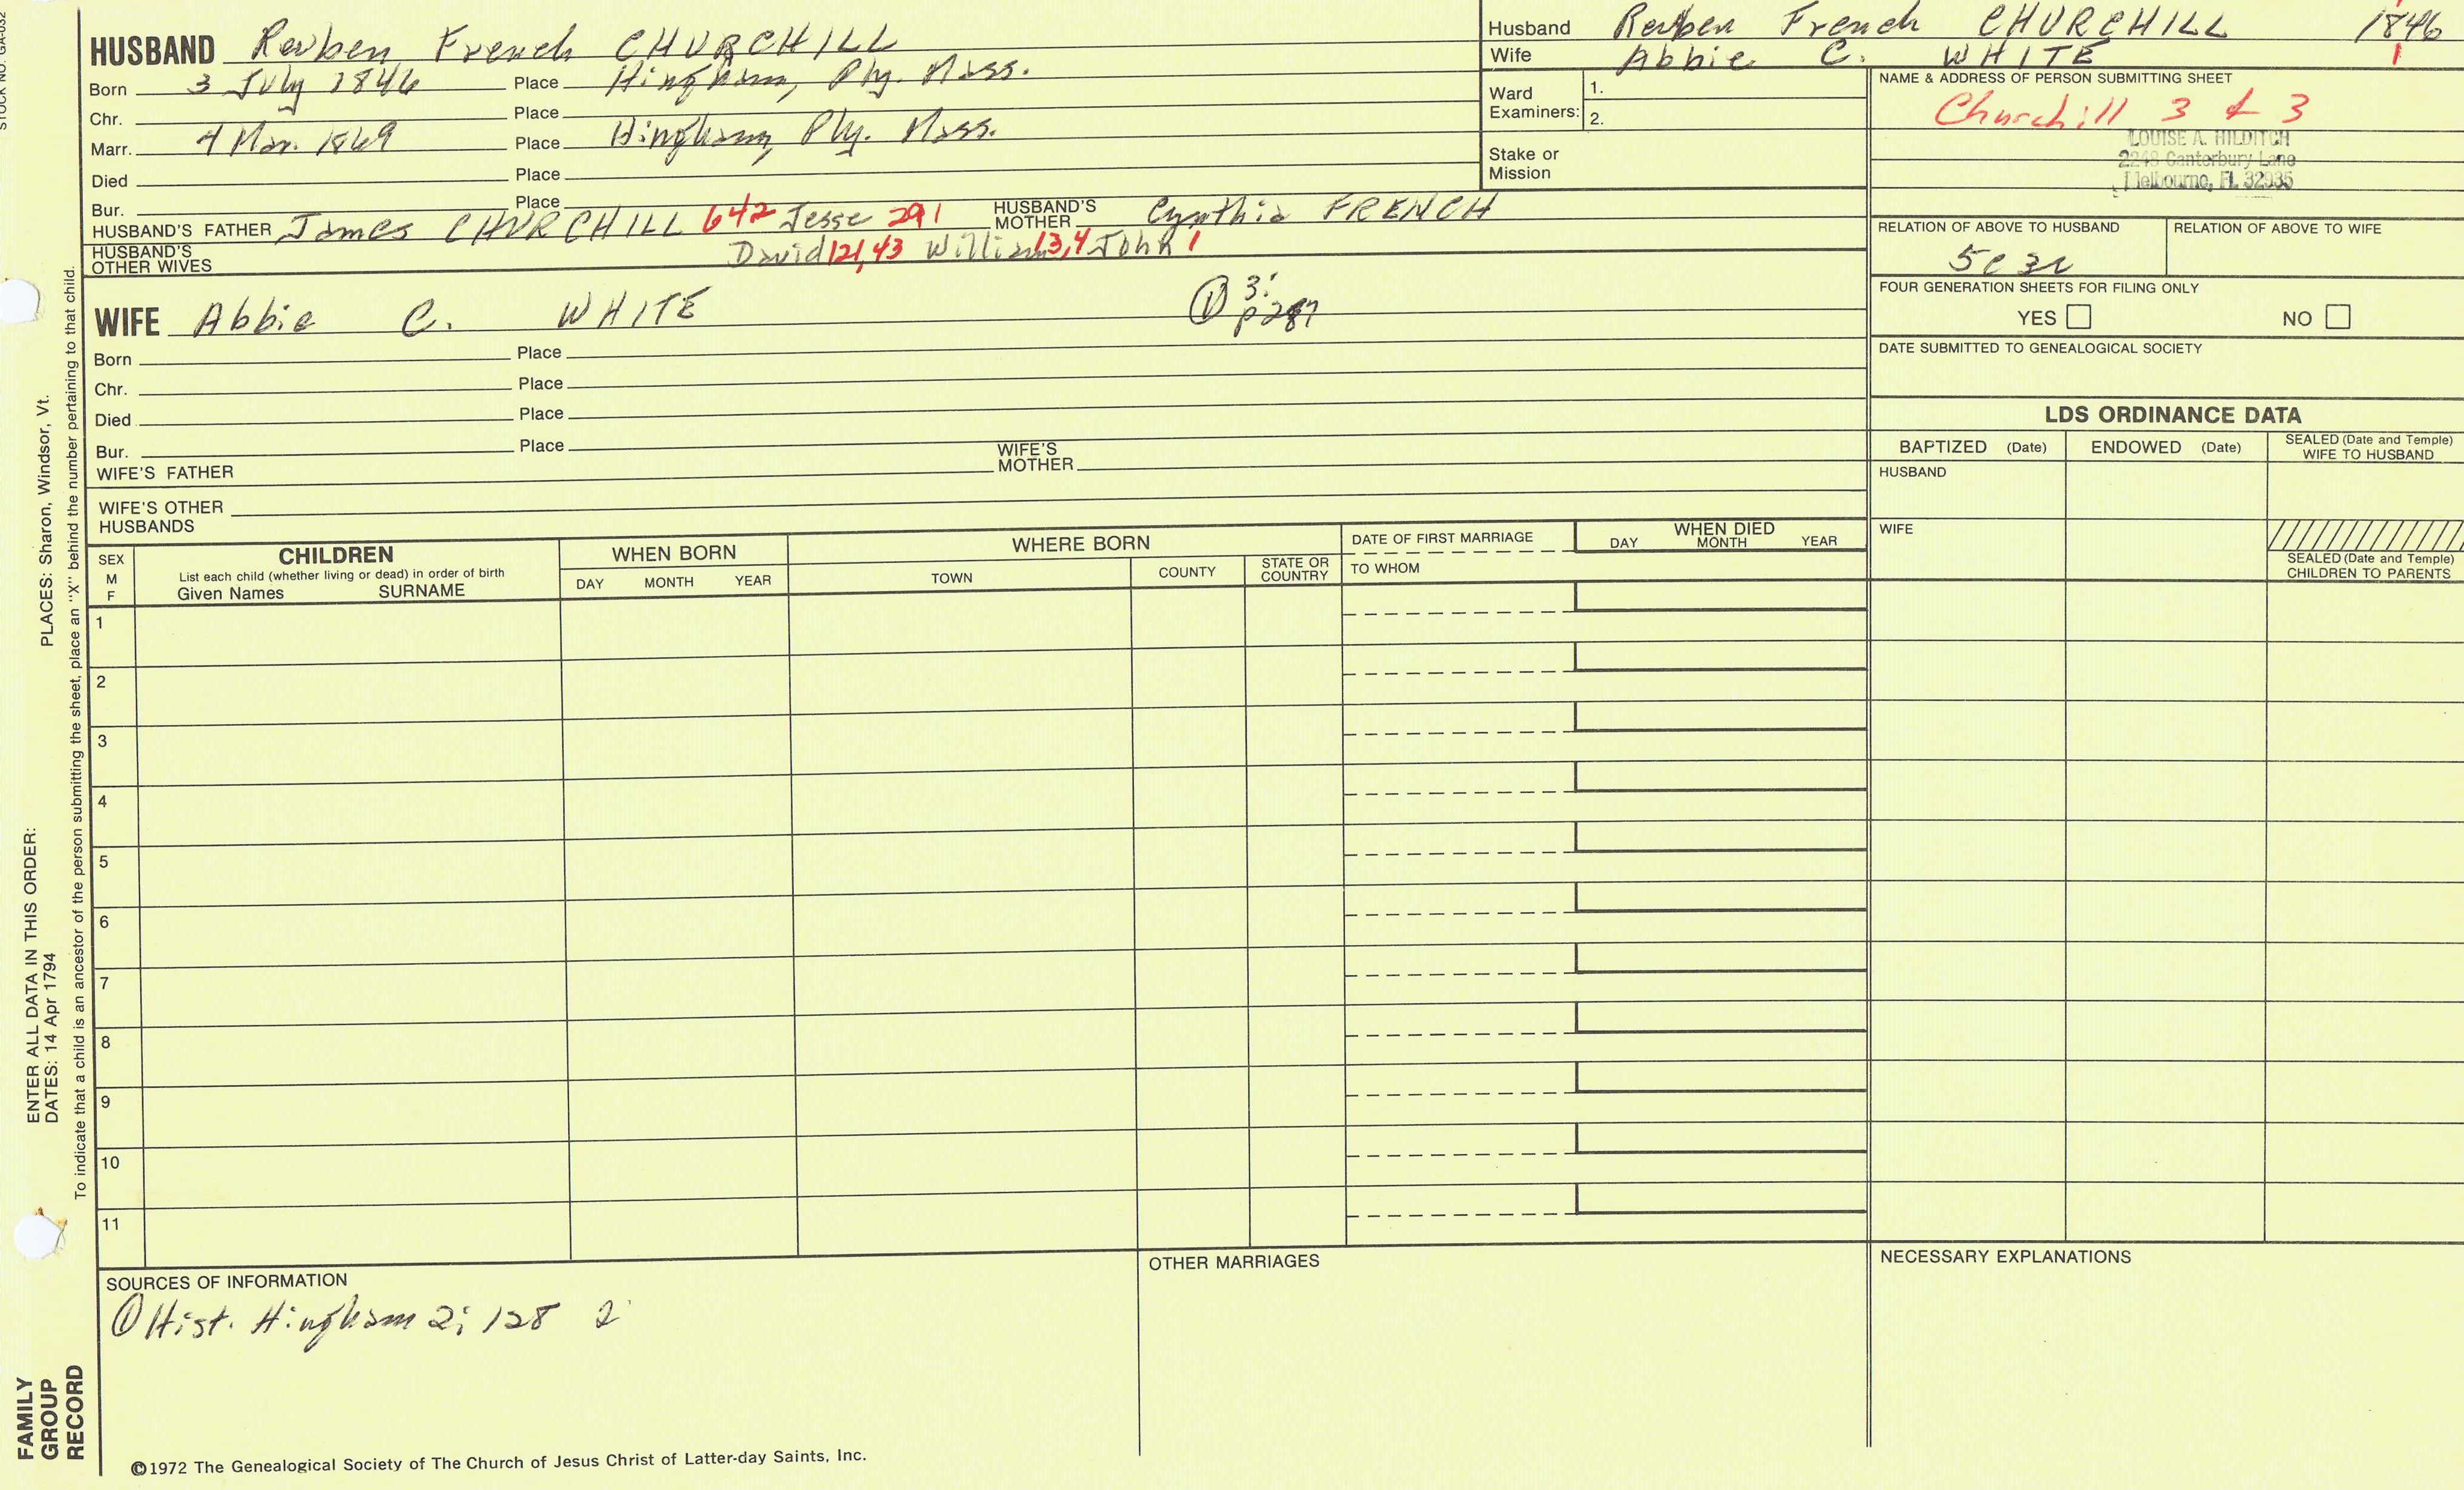 STOCK NO. GA-032
HUSBAND Reuben French CHURCHILL
Born 3 July 1846 Place Hingham, Ply. Mass.
Chr. Place
Marr. 4 Mar. 1869 Place Hingham, Ply. Mass.
Died Place
Bur. Place
HUSBAND'S FATHER James CHURCHILL 642 Jesse 291 HUSBAND'S MOTHER Cynthia FRENCH
HUSBAND'S OTHER WIVES David 121,43 William 13,4 John 1
WIFE Abbie C. WHITE ① 3: p287
Born Place
Chr. Place
Died Place
Bur. Place
WIFE'S FATHER WIFE'S MOTHER
WIFE'S OTHER HUSBANDS
Husband Reuben French CHURCHILL 1846
Wife Abbie C. WHITE 1
Ward Examiners: 1. 2.
Stake or Mission
NAME & ADDRESS OF PERSON SUBMITTING SHEET
Churchill 3 & 3
LOUISE A. HILDITCH
2248 Canterbury Lane
Melbourne, FL 32935
RELATION OF ABOVE TO HUSBAND RELATION OF ABOVE TO WIFE
5c3r
FOUR GENERATION SHEETS FOR FILING ONLY
YES NO
DATE SUBMITTED TO GENEALOGICAL SOCIETY
LDS ORDINANCE DATA
BAPTIZED (Date) ENDOWED (Date) SEALED (Date and Temple) WIFE TO HUSBAND
HUSBAND
WIFE
SEALED (Date and Temple) CHILDREN TO PARENTS
SEX M F
CHILDREN
List each child (whether living or dead) in order of birth
Given Names SURNAME
WHEN BORN
DAY MONTH YEAR
WHERE BORN
TOWN COUNTY STATE OR COUNTRY
DATE OF FIRST MARRIAGE
TO WHOM
WHEN DIED
DAY MONTH YEAR
1
2
3
4
5
6
7
8
9
10
11
SOURCES OF INFORMATION
① Hist. Hingham 2; 128 2
OTHER MARRIAGES
NECESSARY EXPLANATIONS
©1972 The Genealogical Society of The Church of Jesus Christ of Latter-day Saints, Inc.
FAMILY GROUP RECORD
ENTER ALL DATA IN THIS ORDER:
DATES: 14 Apr 1794 PLACES: Sharon, Windsor, Vt.
To indicate that a child is an ancestor of the person submitting the sheet, place an "X" behind the number pertaining to that child.